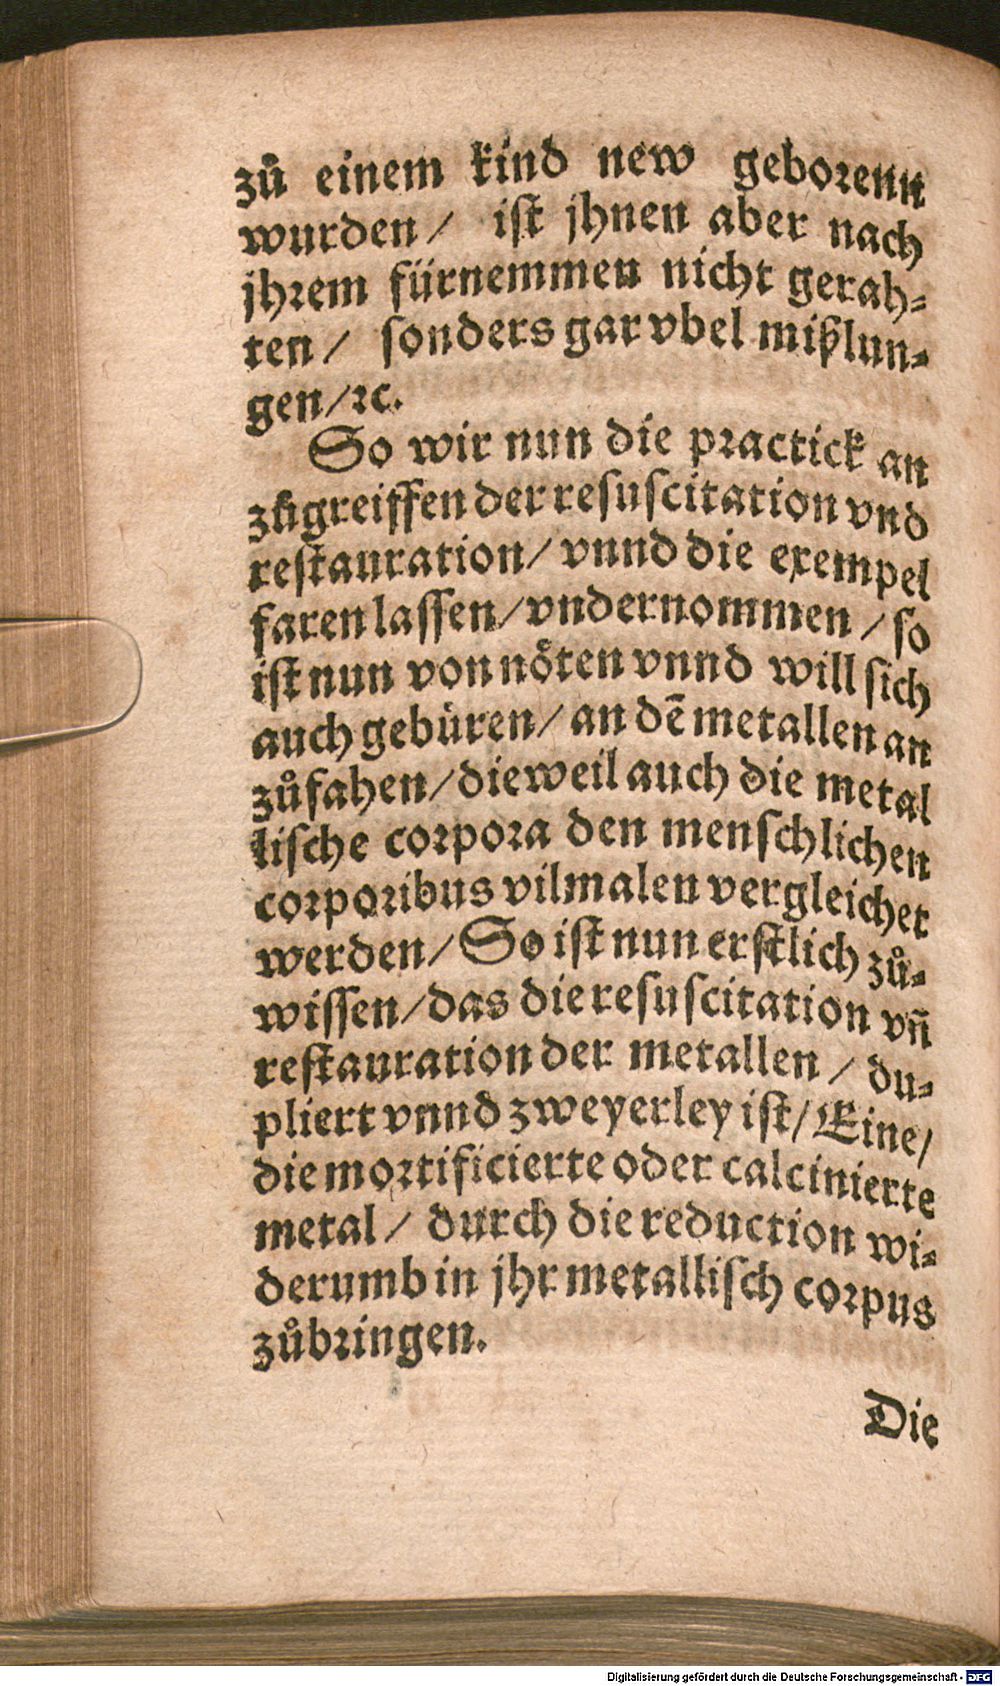 zů einem kind new geborenn
wurden / ist jhnen aber nach
jhrem fürnemmen nicht gerah-
ten / sonders gar vbel mißlun-
gen /ꝛc.
So wir nun die practick an
zůgreiffen der resuscitation vnd
restauration / vnnd die exempel
faren lassen / vndernommen / so
ist nun von nöten vnnd will sich
auch gebüren / an dē metallen an
zůfahen / dieweil auch die metal
lische corpora den menschlichen
corporibus vilmalen vergleichet
werden / So ist nun erstlich zů-
wissen / das die resuscitation vñ
restauration der metallen / du-
pliert vnnd zweyerley ist / Eine /
die mortificierte oder calcinierte
metal / durch die reduction wi-
derumb in jhr metallisch corpus
zůbringen.
Die
Digitalisierung gefördert durch die Deutsche Forschungsgemeinschaft - DFG